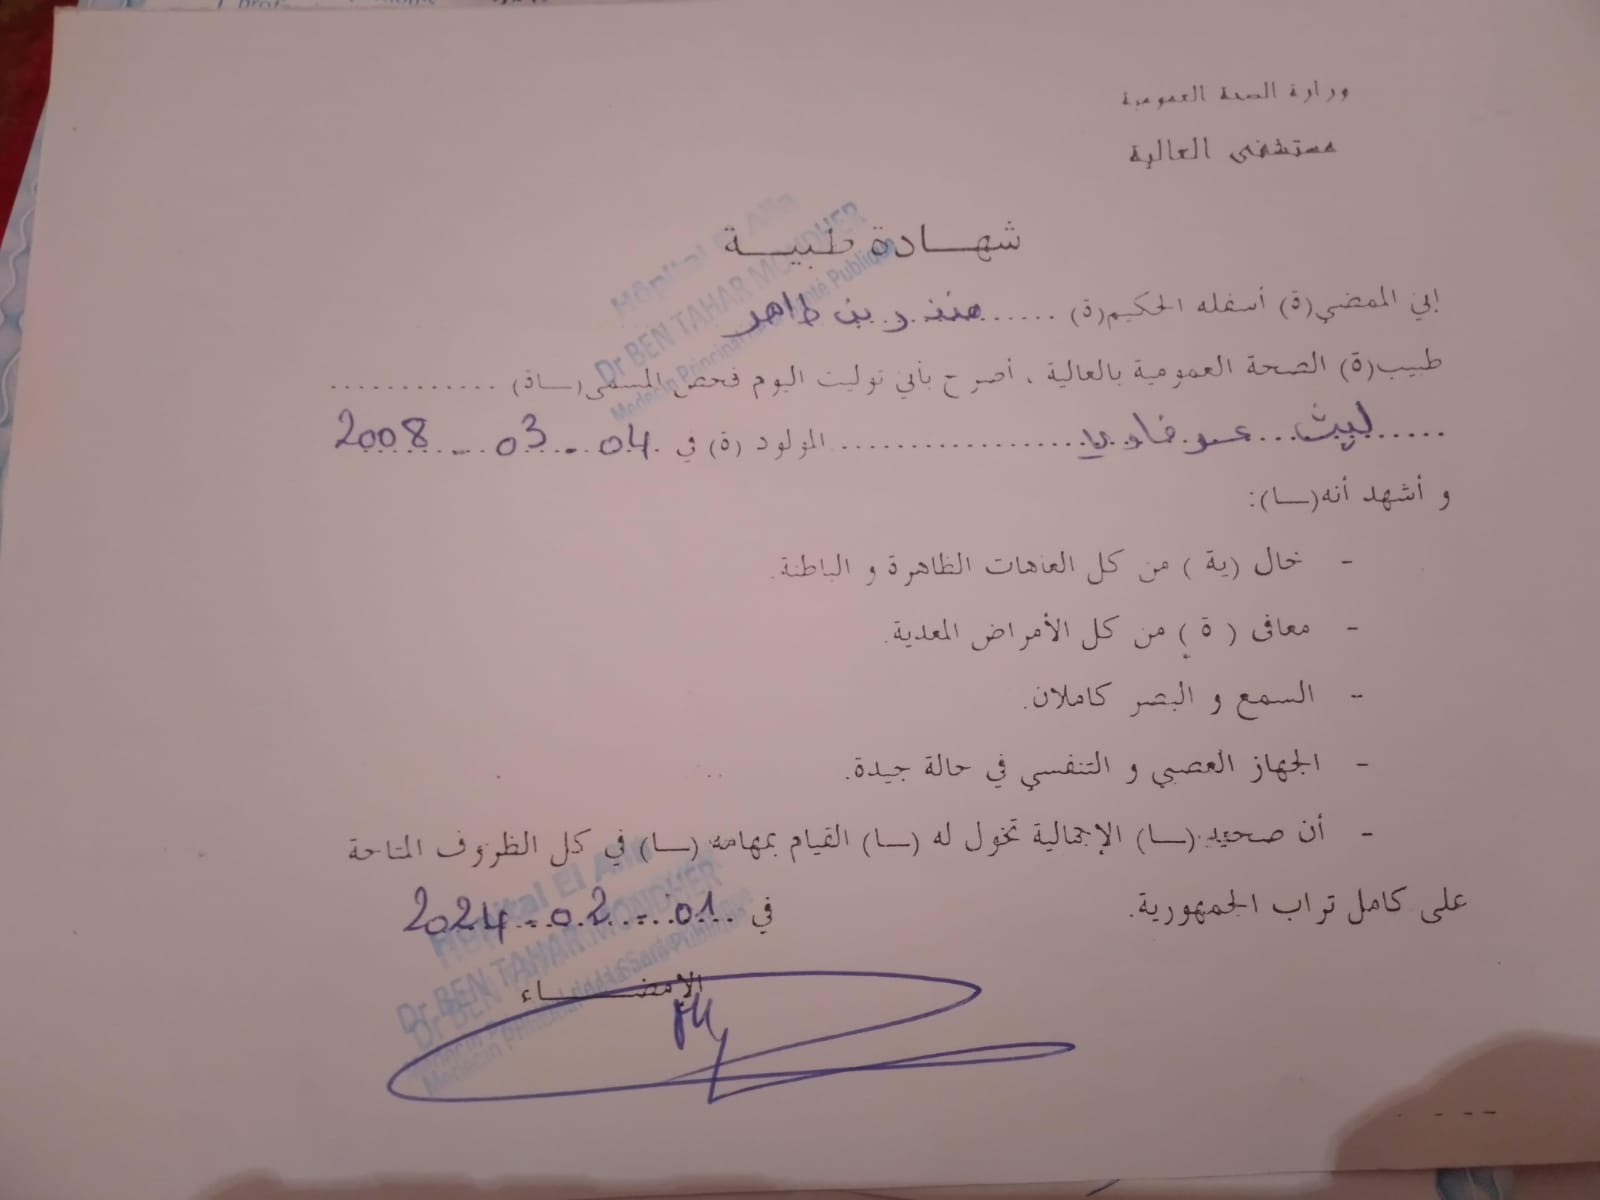 وزارة الصحة العمومية
مستشفى العالية
شهادة طبية
Hôpital El Alia
Dr BEN TAHAR MONDHER
Médecin Principal de la Santé Publique
إني الممضي(ة) أسفله الحكيم(ة) ...... منذر بن طاهر
طبيب(ة) الصحة العمومية بالعالية ، أصرح بأني توليت اليوم فحص المسمى(ـاة) ............
..... ليث ... المولود (ة) في 04-03-2008
و أشهد أنه(ـا):
- خال (ية ) من كل العاهات الظاهرة و الباطنة.
- معافى ( ة ) من كل الأمراض المعدية.
- السمع و البصر كاملان.
- الجهاز العصبي و التنفسي في حالة جيدة.
- أن صحته (ـا) الإجمالية تخول له (ـا) القيام بمهامه (ـا) في كل الظروف المتاحة
على كامل تراب الجمهورية.
في 01-02-2024
Hôpital El Alia
Dr BEN TAHAR MONDHER
Médecin Principal de la Santé Publique
الإمضـــــاء